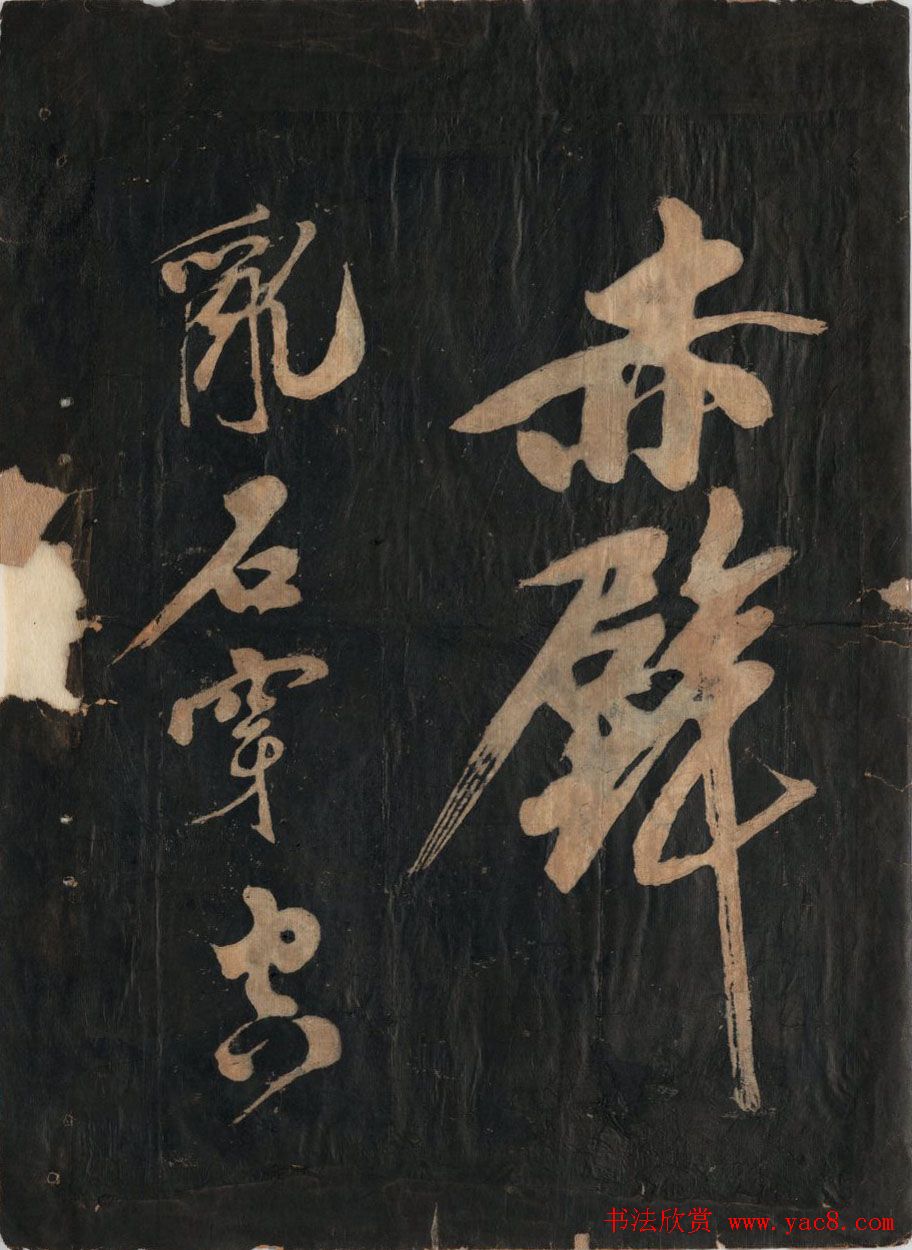 赤壁
亂石穿空
书法欣赏 www.yac8.com